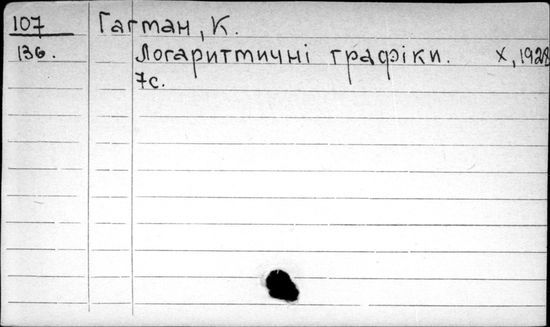 107 Гагман, К.
136. Логаритмичні графіки. X, 1928
7с.